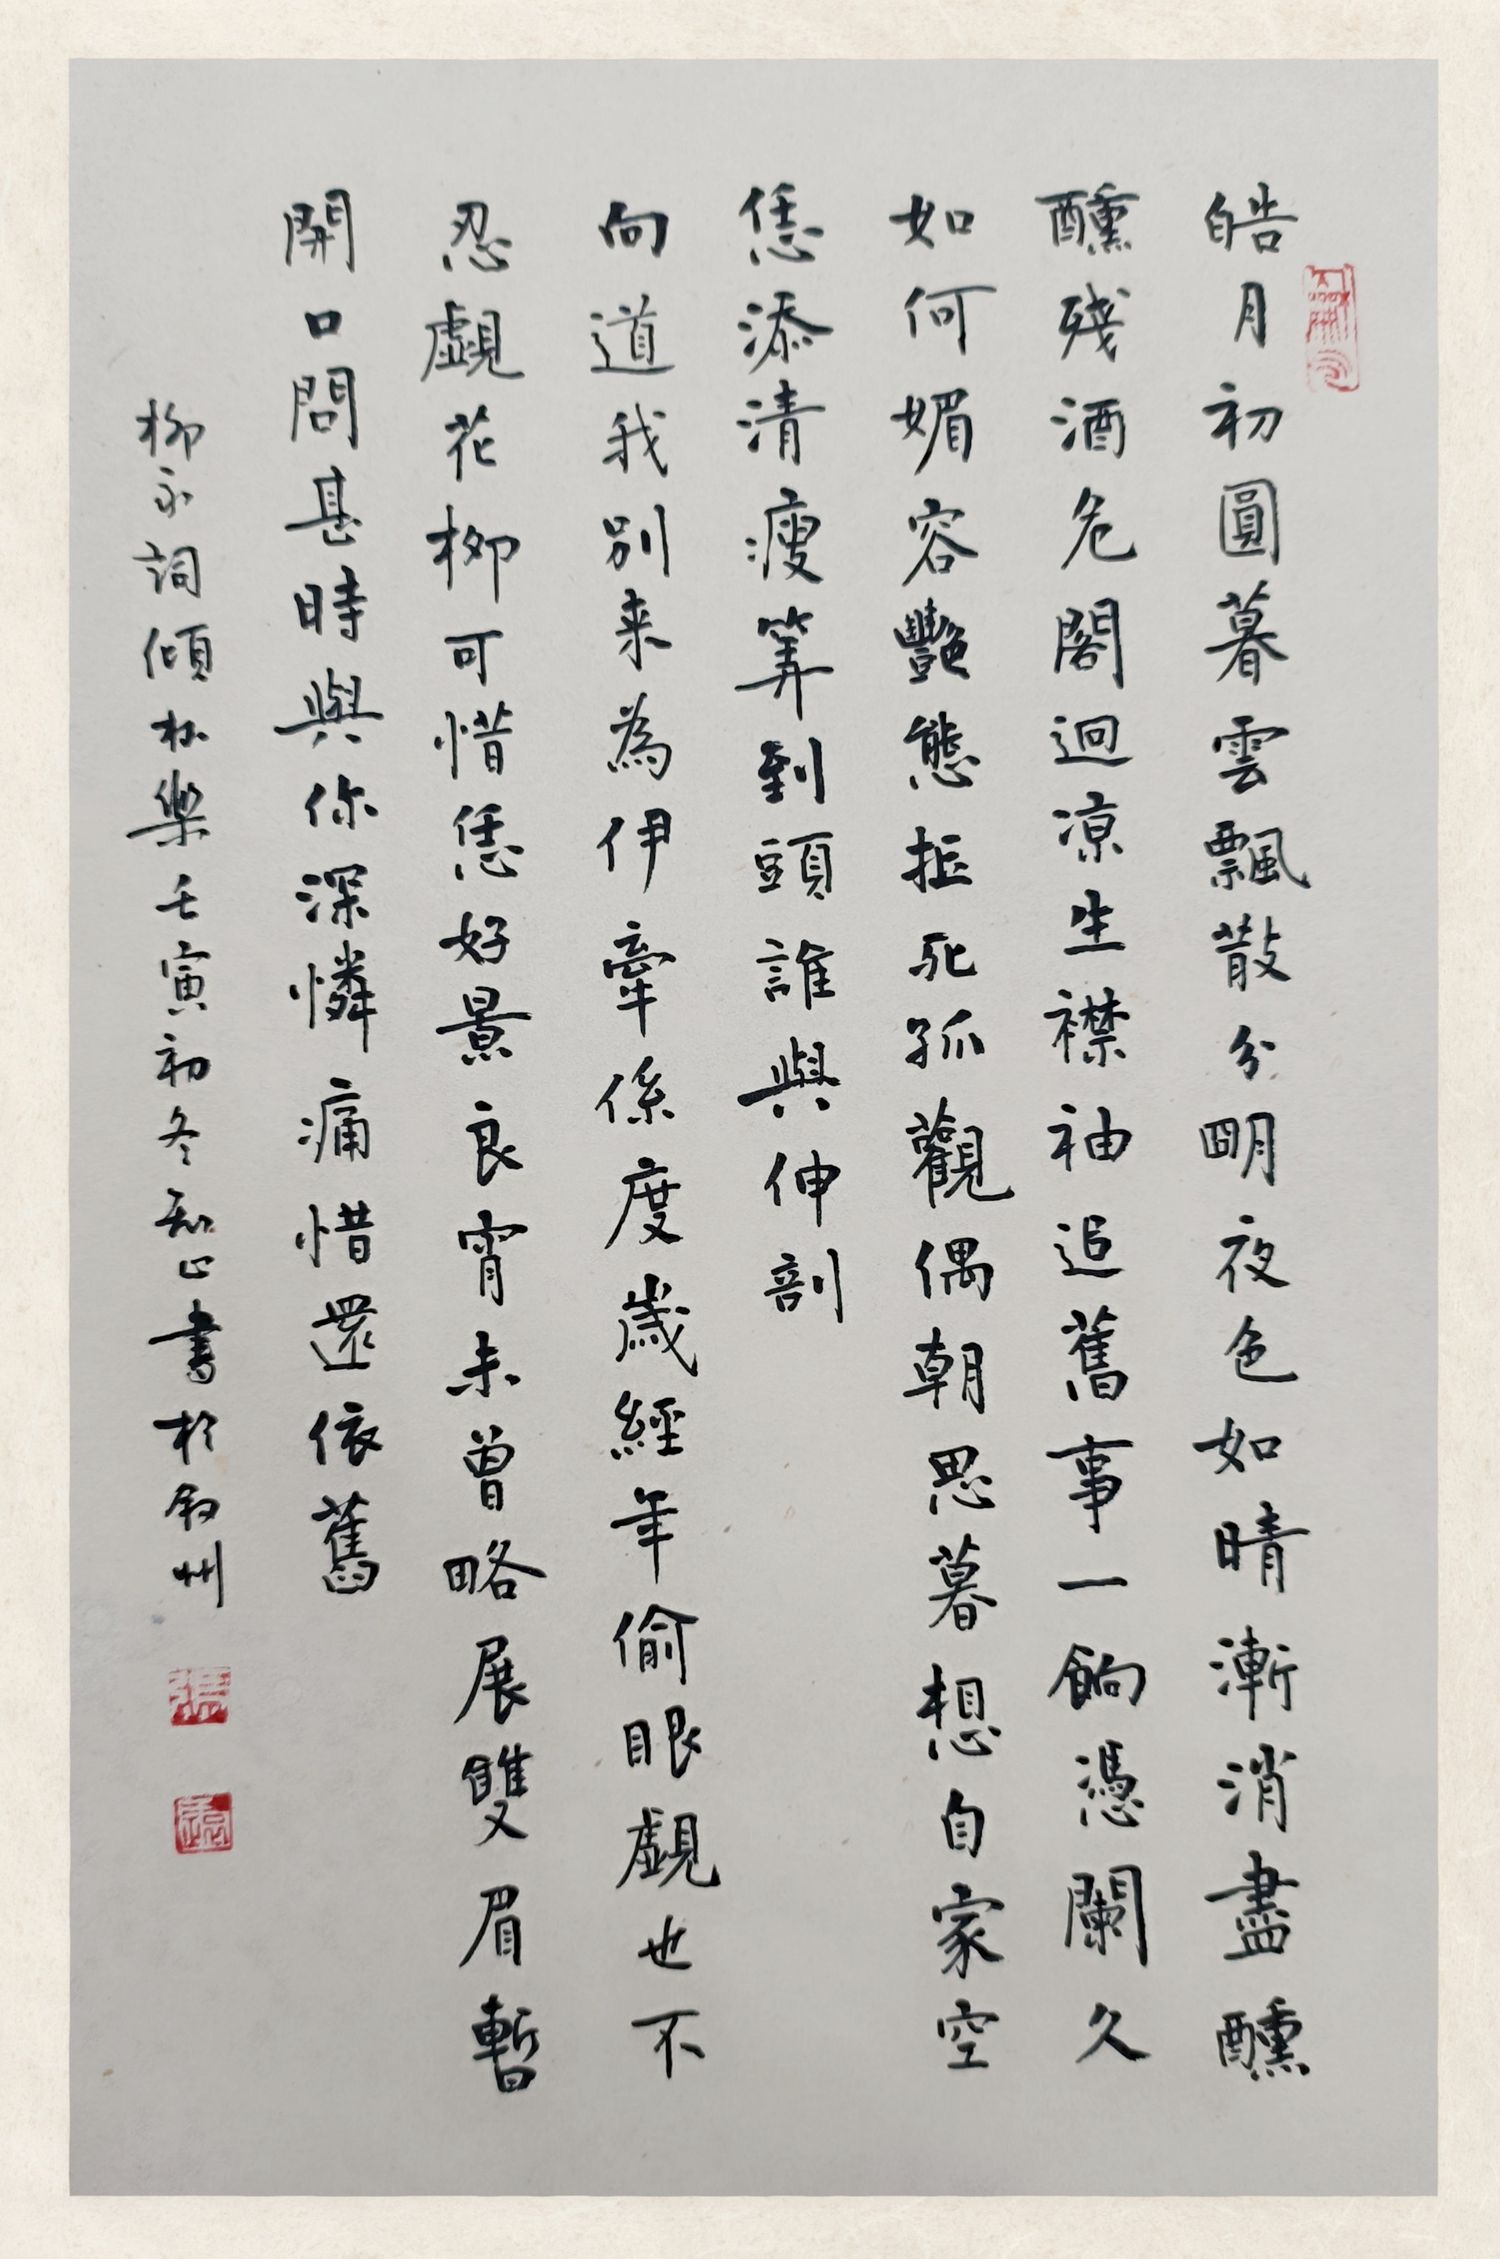 皓月初圓暮雲飄散分朙夜色如晴漸消盡醺
醺殘酒危閣迥凉生襟袖追舊事一餉憑闌久
如何媚容艷態抵死孤觀偶朝思暮想自家空
恁添清瘦筭到頭誰與伸剖
向道我別来為伊牽係度歲經年偷眼覷也不
忍覷花柳可惜恁好景良宵未曾略展雙眉暫
開口問甚時與你深憐痛惜還依舊
柳永詞傾杯樂壬寅初冬 書於叙州